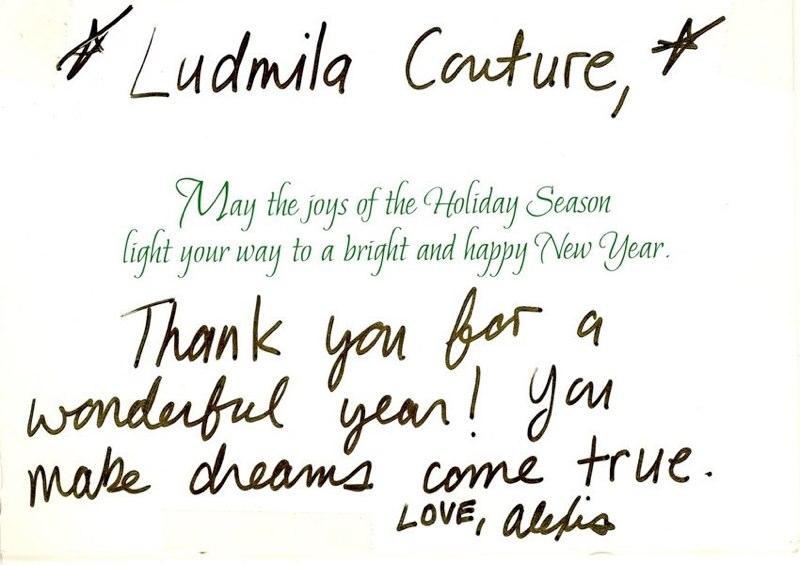 Ludmila Couture,
May the joys of the Holiday Season
light your way to a bright and happy New Year.
Thank you for a
wonderful year! You
make dreams come true.
LOVE, Alexis